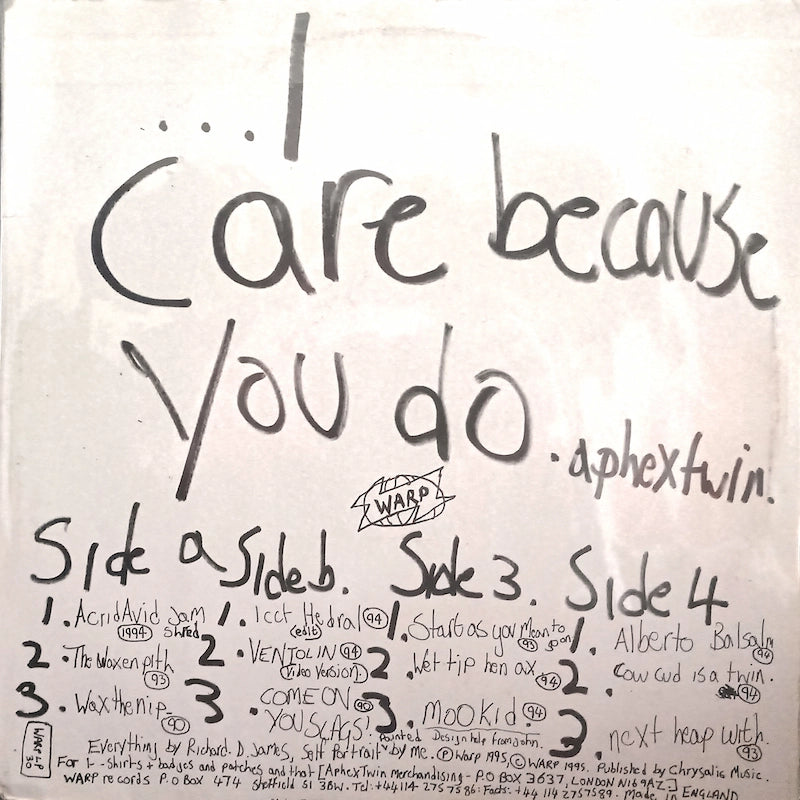 ....I
Care because
you do.
.aphextwin.
WARP
Side a
1. Acrid Avid Jam
1994 Shred
2. The Waxen pith
93
3. Wax the nip
90
Side b.
1. Icct Hedral 94
(edit)
2. VENTOLIN 94
(Video Version).
3. COME ON 90
YOU SLAGS!
Side 3.
1. Start as you Mean to
93 go on
2. Wet tip hen ax.
94
3. MOOkid. 94
Side 4
1. Alberto Balsalm
94
2. Cow cud is a twin.
94
3. next heap with.
93
WARP LP
30
Everything by Richard. D. James, Self Portrait painted by me. Design help from john. Ⓟ Warp 1995, Ⓒ WARP 1995. Published by Chrysalis Music.
For t-Shirts + badges and patches and that [Aphex Twin Merchandising - P.O BOX 3637, LONDON N16 9AZ]
WARP records P.O BOX 474 Sheffield S1 3BW. Tel: +44114 2757586: Facts: +44 114 2757589. Made in ENGLAND